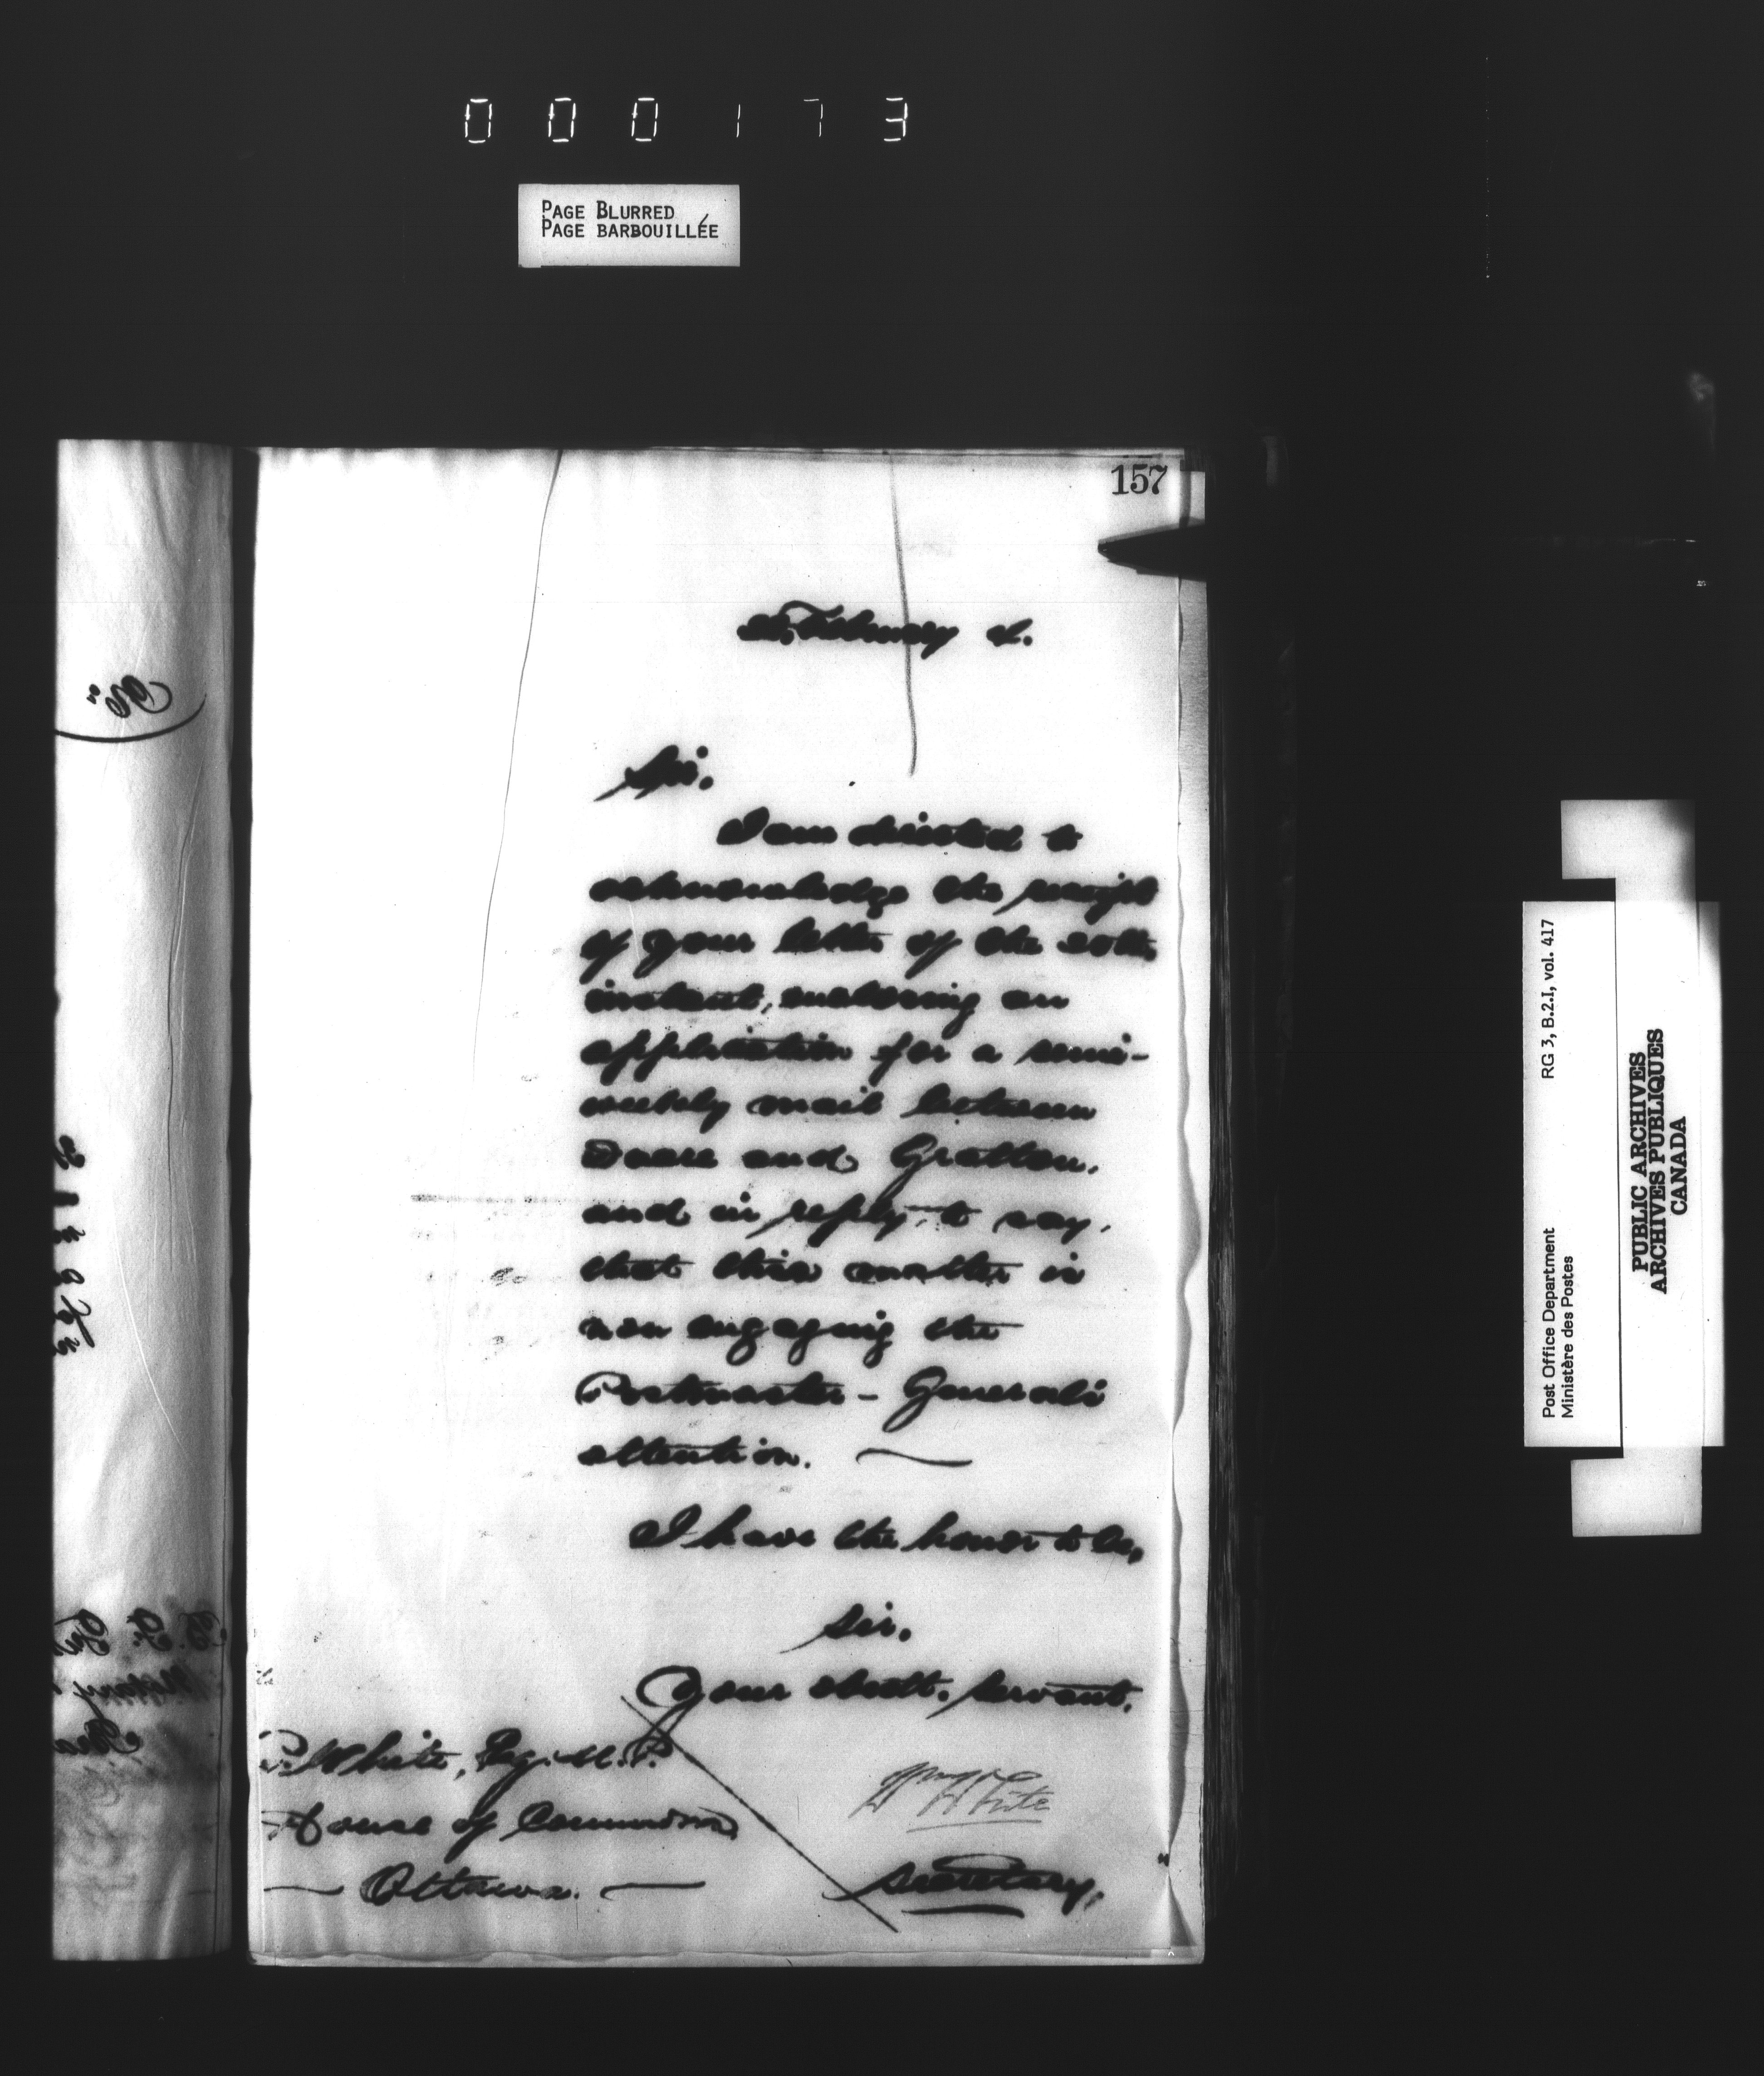 000173
PAGE BLURRED
PAGE BARBOUILLÉE
157
February
Sir.
I am directed to
acknowledge the receipt
of your letter of the 20th.
instant, enclosing an
application for a semi-
weekly mail between
Doare and Grattan.
and in reply, to say,
that this matter is
now engaging the
Postmaster - General's
attention.
I have the honor to be,
Sir.
Your obedt. servant.
P. White, Esq. M.P.
House of Commons
Ottawa.
White
Secretary.
Post Office Department RG 3, B.2.I, vol. 417
Ministère des Postes
PUBLIC ARCHIVES
ARCHIVES PUBLIQUES
CANADA